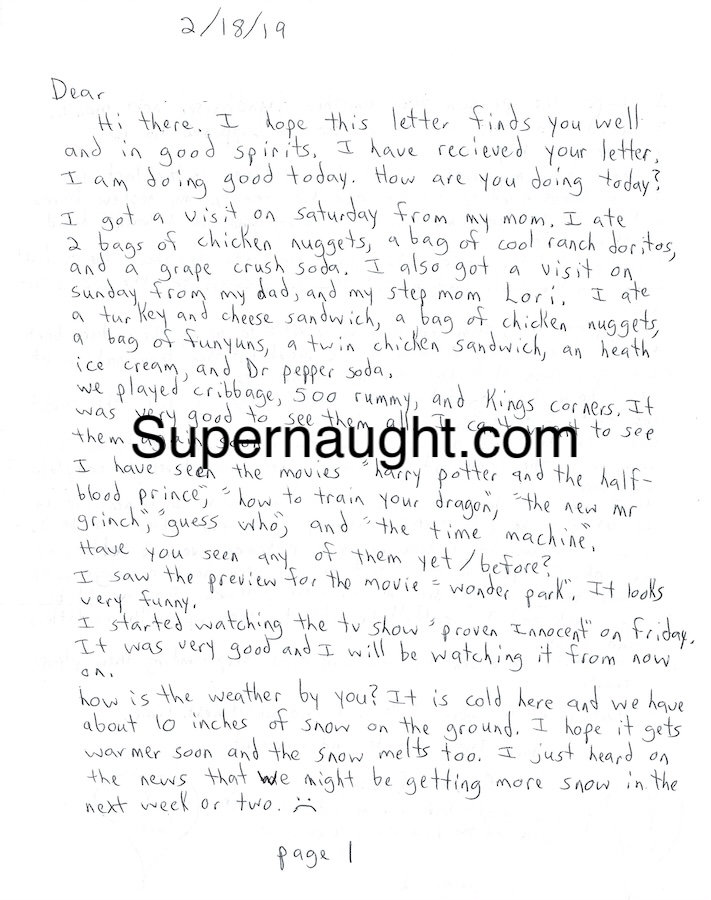 2/18/19
Dear
Hi there. I hope this letter finds you well
and in good spirits. I have recieved your letter.
I am doing good today. How are you doing today?
I got a visit on saturday from my mom. I ate
2 bags of chicken nuggets, a bag of cool ranch doritos,
and a grape crush soda. I also got a visit on
sunday from my dad, and my step mom Lori. I ate
a turkey and cheese sandwich, a bag of chicken nuggets,
a bag of funyuns, a twin chicken sandwich, an heath
ice cream, and Dr pepper soda.
we played cribbage, 500 rummy, and Kings corners. It
was very good to see them all. I can't wait to see
them again soon.
Supernaught.com
I have seen the movies "harry potter and the half-
blood prince", "how to train your dragon", "the new mr
grinch", "guess who", and "the time machine".
Have you seen any of them yet/before?
I saw the preview for the movie "wonder park". It looks
very funny.
I started watching the tv show "proven Innocent" on friday.
It was very good and I will be watching it from now
on.
how is the weather by you? It is cold here and we have
about 10 inches of snow on the ground. I hope it gets
warmer soon and the snow melts too. I just heard on
the news that We might be getting more snow in the
next week or two. :(
page 1